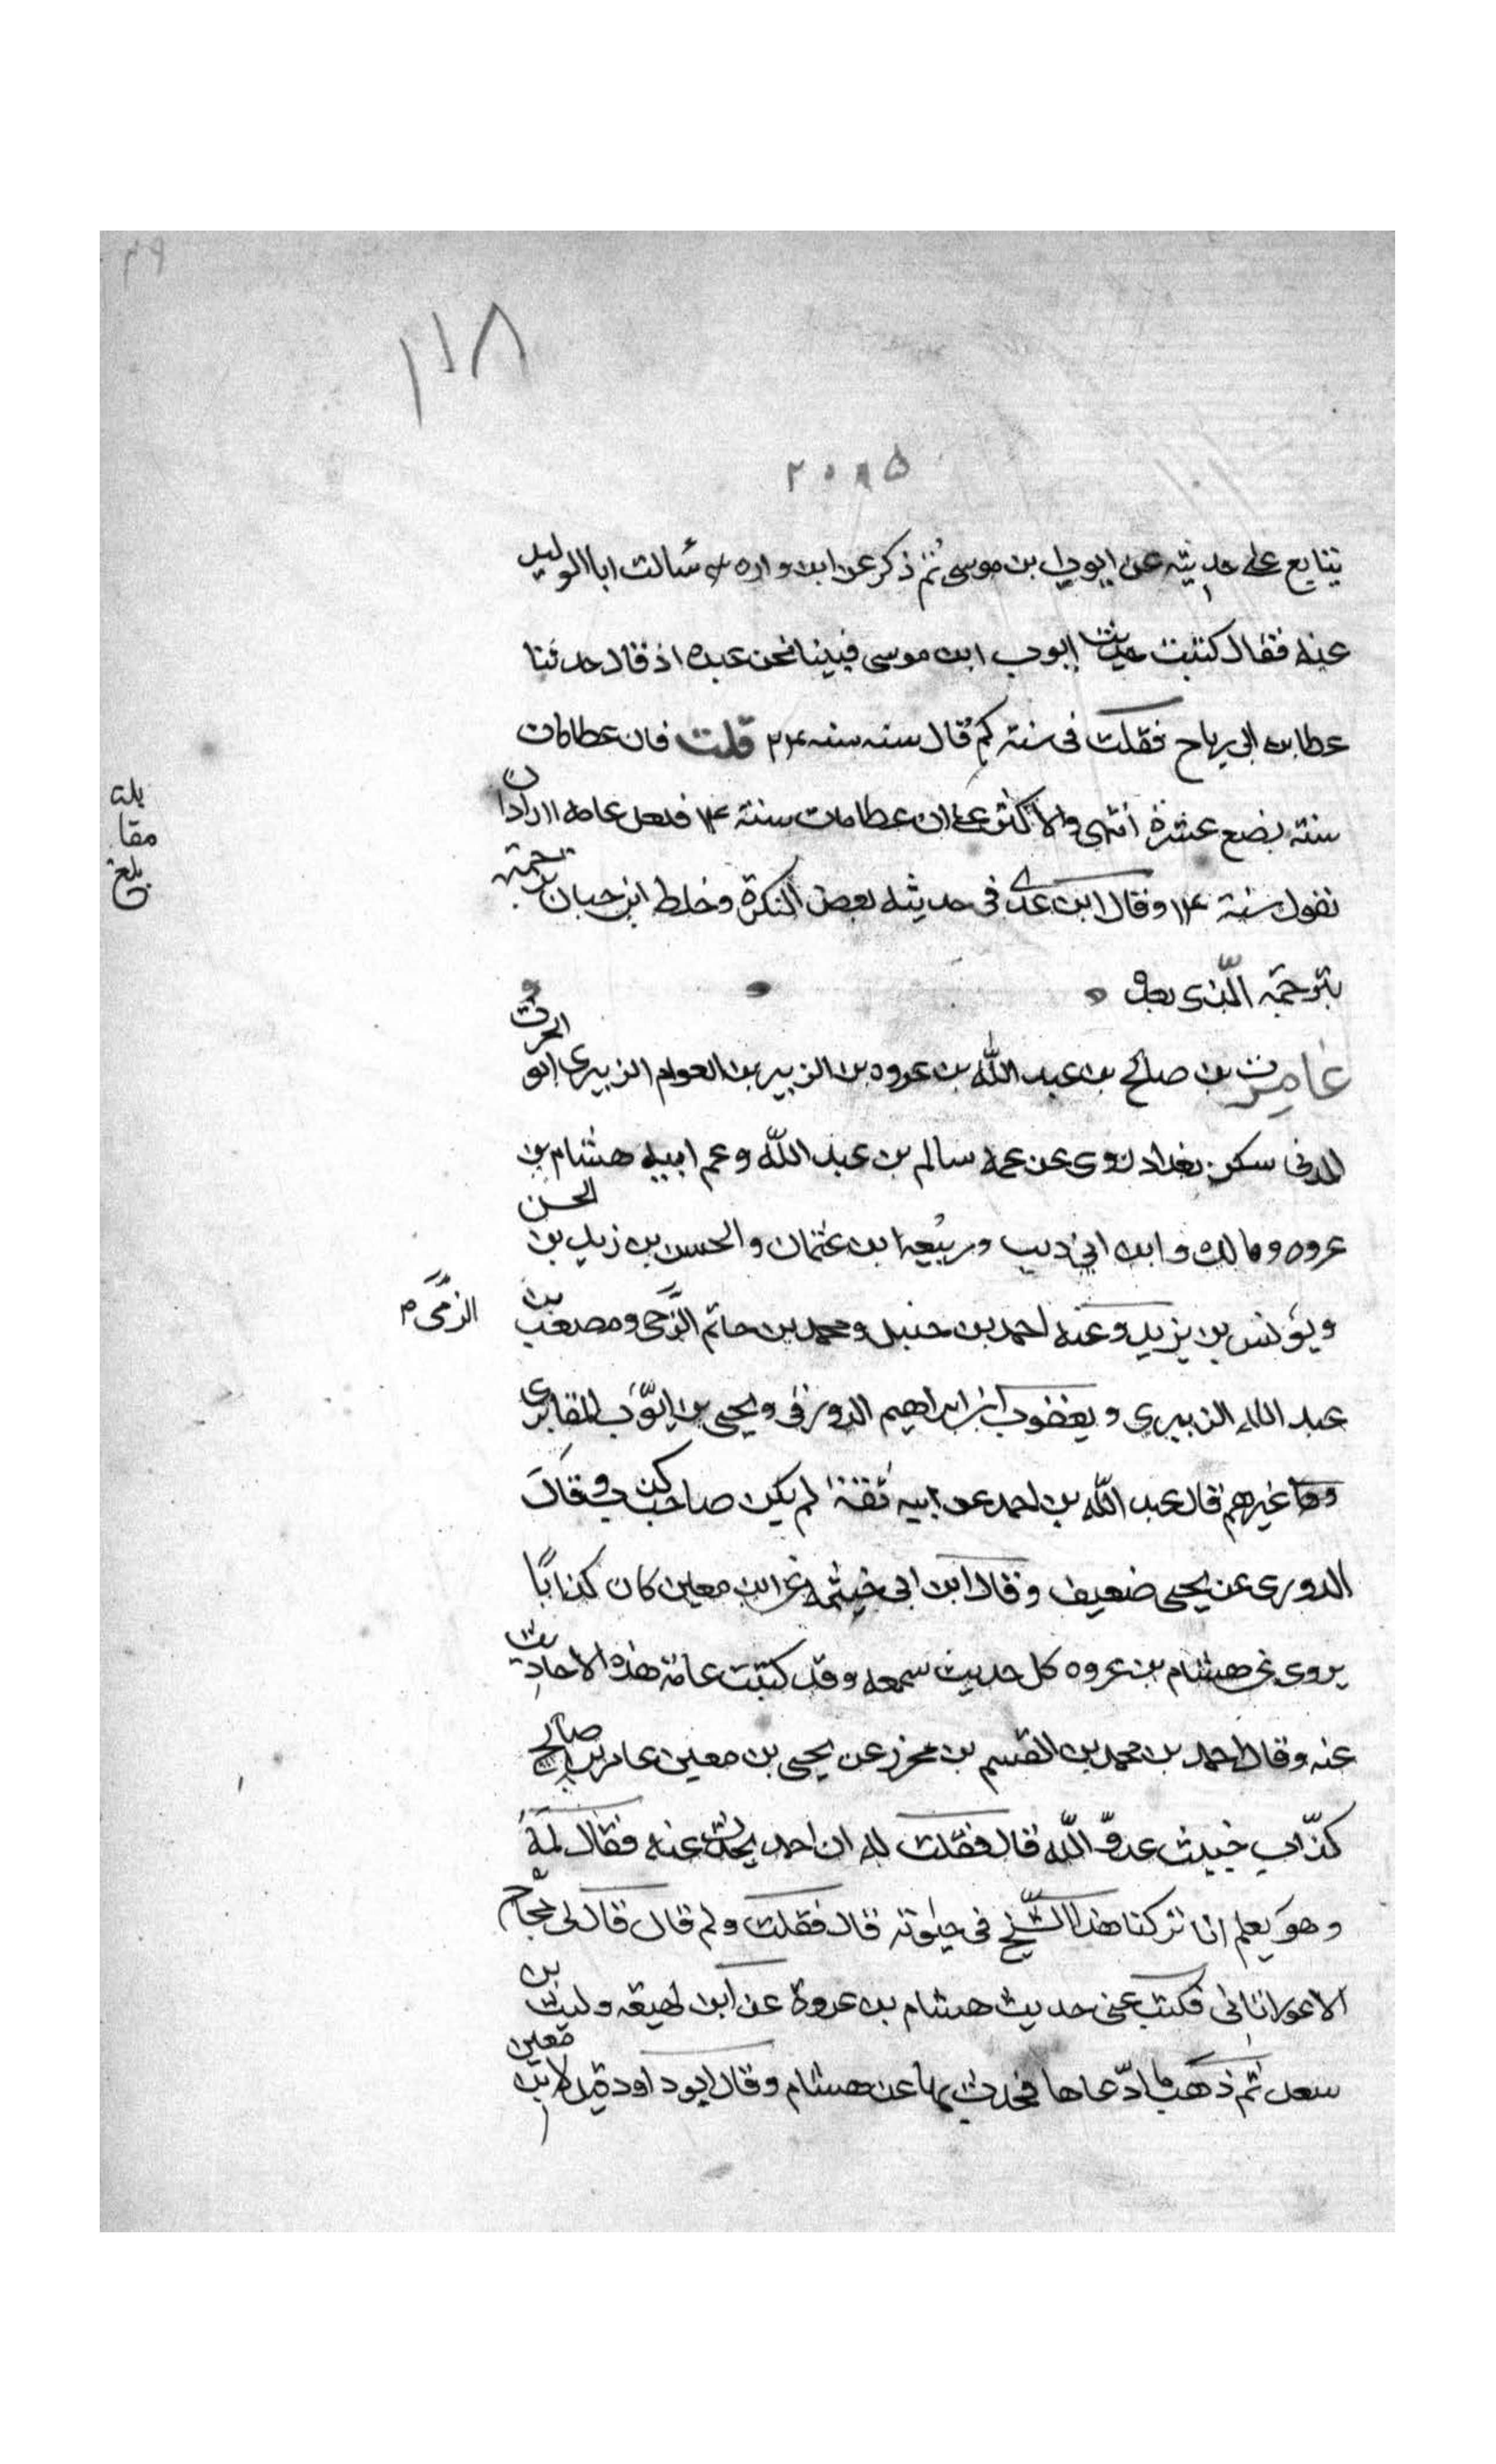 ١١٨
٢٠٩٥
يتابع على حديثه عن ايوب بن موسى ثم ذكر عن ابن واره سألت ابا الوليد
عنه فقال كتبت حديث ايوب ابن موسى فبينا نحن عنده اذ قال حدثنا
عطا بن ابي رباح فقلت فى سنة كم قال سنه سنه ٢٤ قلت فان عطا كان
سنة بضع عشرة انتهى والاكثر على ان عطا مات سنة ١٤ فلعل عامه اراد ان
نقول سنة ١٢٤ وقال ابن عدى فى حديثه بعض النكرة وخلط ابن حبان ترجمته
بترجمة الذى بعده
عامر ت بن صالح بن عبد الله بن عروه بن الزبير بن العوام الزبيرى ابو الحرث
المدنى سكن بغداد روى عن عمه سالم بن عبد الله وعم ابيه هشام بن
عروه ومالك وابن ابي ذيب وربيعه ابن عثمان والحسن بن زيد بن الحسن
ويونس بن يزيد وعنه احمد بن حنبل ومحمد بن حاتم الزمى ومصعب بن
الزمى م
عبد الله الزبيري ويعقوب ابن ابراهيم الدورقى ويحيى بن ايوب المقابرى
وغيرهم قال عبد الله بن احمد عن ابيه ثقة لم يكن صاحب كذب وقال
الدورى عن يحيى ضعيف وقال ابن ابى خيثمه عن ابن معين كان كذابًا
يروى عن هشام بن عروه كل حديث سمعه وقد كتبت عامة هذه الاحاديث
عنه وقال احمد بن محمد بن القسم بن محرز عن يحيى بن معين عامر بن صالح
كذّاب خبيث عدوّ الله قال فقلت له ان احمد يحدث عنه فقال لمه
وهو يعلم انا تركنا هذا الشيخ فى حيوته قال فقلت ولم قال قال لى حجاج
الاعور اتانى فكتب عنى حديث هشام بن عروة عن ابن لهيعه وليث بن
سعد ثم ذهب فادّعاها فحدث بها عن هشام وقال ابو داود قيل لابن معين
بلغ
مقا
بله